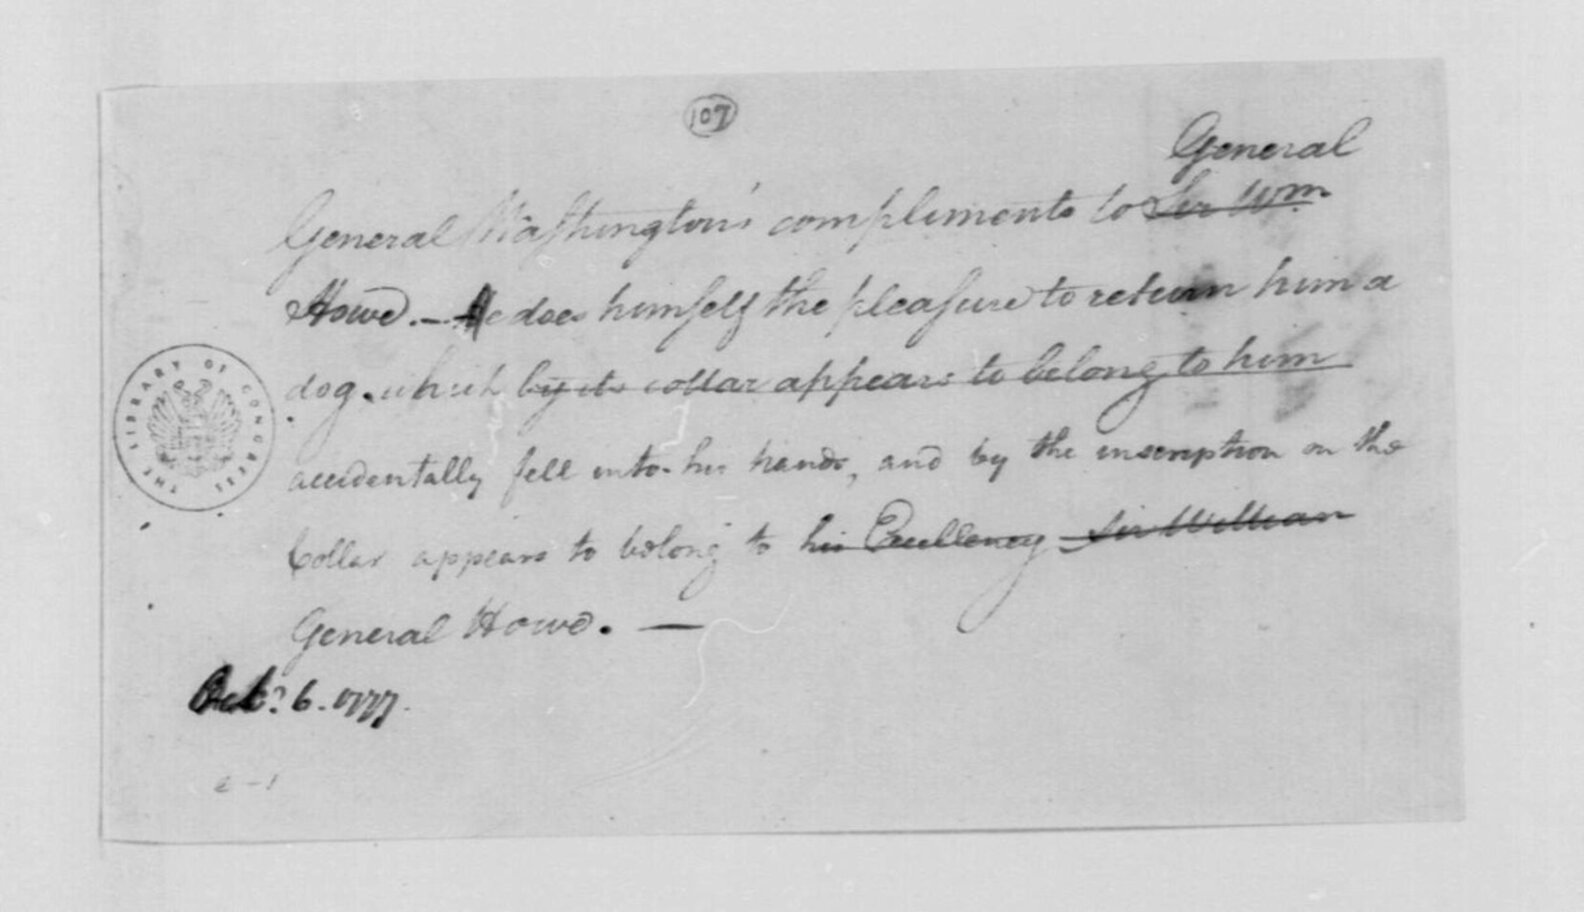 107
General
General Washington's compliments to ~~Sir Wm~~
Howe. — He does himself the pleasure to return him a
dog, which ~~by its collar appears to belong to him~~
accidentally fell into his hands, and by the inscription on the
Collar appears to belong to ~~his Excellency~~ ~~Sir William~~
General Howe. —
Octr. 6. 1777.
THE LIBRARY OF CONGRESS